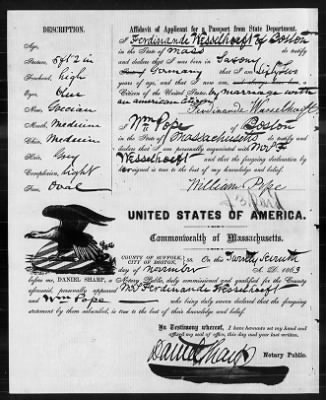 DESCRIPTION.
Age,
Stature, 5 ft 2 in
Forehead, high
Eyes, blue
Nose, Grecian
Mouth, Medium
Chin, Medium
Hair, Grey
Complexion, Light
Face, Oval
Affidavit of Applicant for a Passport from State Department.
I Ferdinande Wesselhoeft of Boston
in the State of Mass do testify
and declare that I was born in Saxony
Germany and that I am Sixty two
years of age, and that I am
Citizen of the United States by marriage with
an american Citizen
Ferdinande Wesselhoeft
I Wm Pope of Boston
in the State of Massachusetts do testify and
declare that I am personally acquainted with Mrs F
Wesselhoeft and that the foregoing declaration by
signed is true to the best of my knowledge and belief.
William Pope
UNITED STATES OF AMERICA.
Commonwealth of Massachusetts.
COUNTY OF SUFFOLK,
CITY OF BOSTON, SS. On this Twenty Seventh
day of November A. D. 1863
before me, DANIEL SHARP, a Notary Public, duly commissioned and qualified for the County
aforesaid, personally appeared Mrs Ferdinande Wesselhoeft
and Wm Pope who being duly sworn declared the foregoing
statement by them subscribed, is true to the best of their knowledge and belief.
In Testimony whereof, I have hereunto set my hand and
affixed my seal of office this day and year last above written.
Daniel Sharp
Notary Public.